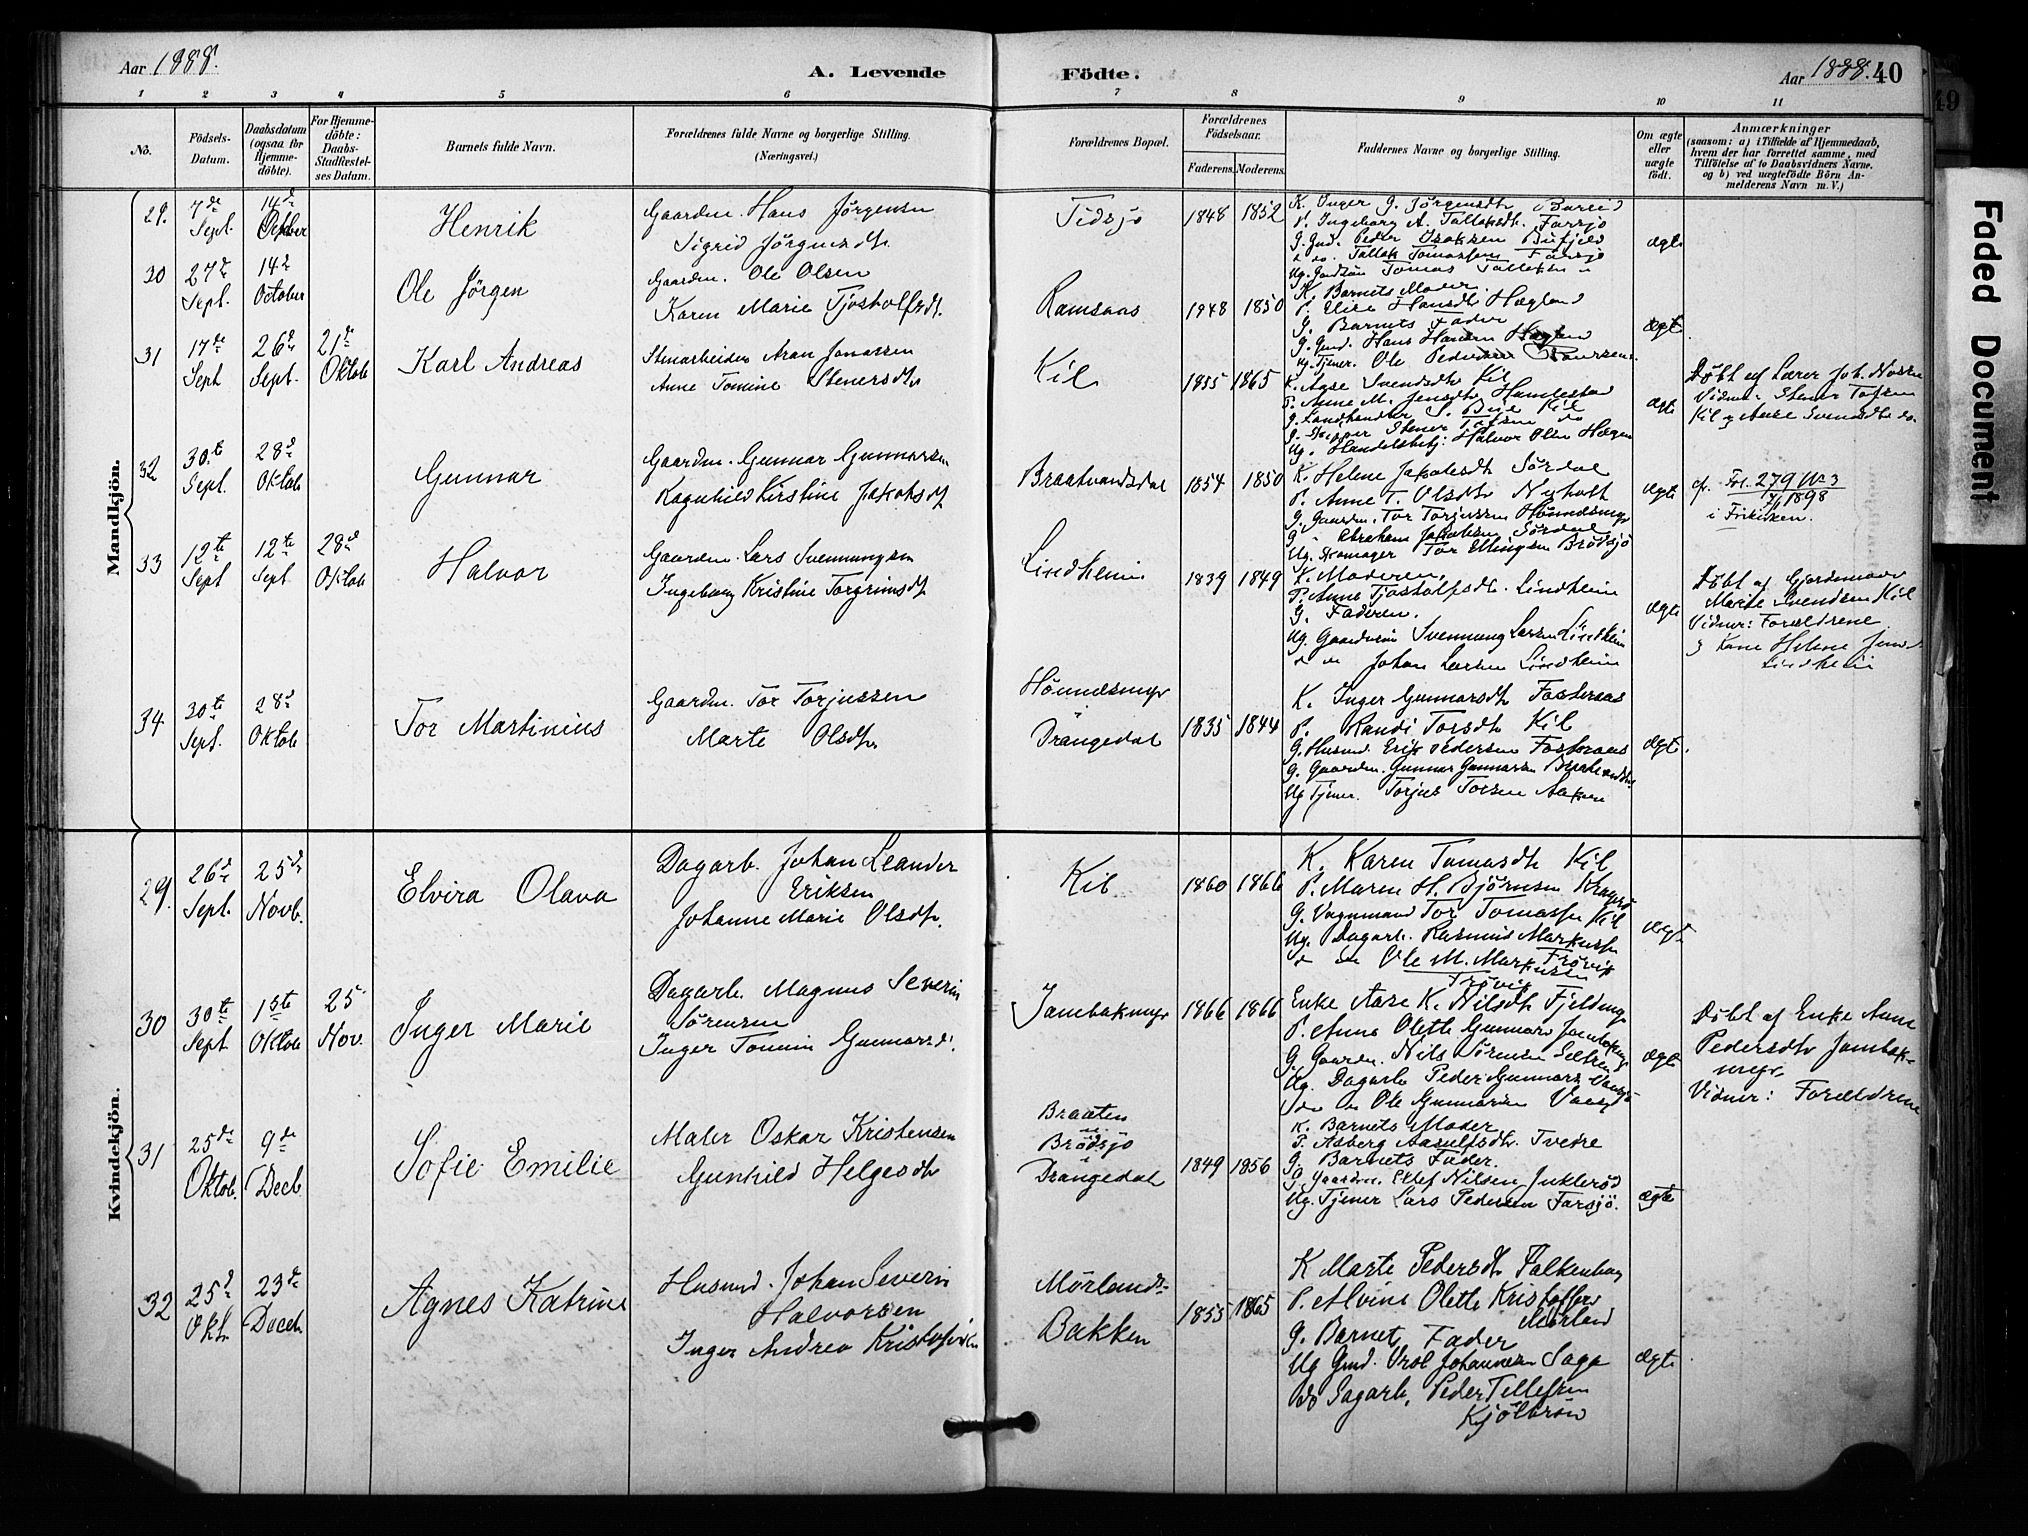 Aar 1888.
A. Levende Födte.
Aar 1888. 40
49
Faded Document
1 2 3 4 5 6 7 8 9 10 11
No.
Födsels-
Datum.
Daabsdatum
(ogsaa for
Hjemme-
döbte).
For Hjemme-
döbte:
Daabs-
Stadfæstel-
ses Datum.
Barnets fulde Navn.
Forældrenes fulde Navne og borgerlige Stilling.
(Næringsvei.)
Forældrenes Bopæl.
Forældrenes
Födselsaar.
Faderens. Moderens.
Faddernes Navne og borgerlige Stilling.
Om ægte
eller
uægte
födt.
Anmærkninger
(saasom: a) i Tilfælde af Hjemmedaab,
hvem der har forrettet samme, med
Tilföielse af to Daabsvidners Navne.
og b) ved uægtefödte Börn An-
melderens Navn m. V.)
Mandkjön.
29. 7de Sept. 14d October
Henrik
Gaardm. Hans Jörgensen
Sigrid Jörgensdtr
Tidsjø
1848 1852
K. Inger G. Jörgensdtr
P. Ingeborg A. Tallaksdtr. Farsjø
G. Gmd. Peder Isaksen Bufjeld
do. Tallak Tomassen Farsjø
Ug. Tomas Tallaksen
ægte
30 27de Sept. 14d October
Ole Jörgen
Gaardm. Ole Olsen
Karen Marie Tjostolfsdt.
Ramsaas
1848 1850
K. Barnets Moder.
P. Elise Hansdtr Hægland
G. Barnets Fader
G. Gmd. Hans Hansen
Ug. Tjener. Ole Pedersen
ægte
31 17de Sept 26de Sept. 21de Oktob
Karl Andreas
Stenarbeider Aran Jonassen
Anne Tomine Stenersdtr
Kil
1855 1865
K. Aase Svendsdtr Kil
P. Anne M. Jensdtr Hamlestad
G. Landhandler S. Bye Kil
G. Stener Tofsen do
Ug. Handelsbetj: Halvor Olsen
ægte
Döbt af Lærer Joh.
Vidner: Stener Tofsen
Kil og Aase Svendsdtr do.
32 30te Sept. 28d Oktob
Gunnar
Gaardm. Gunnar Gunnarsen
Ragnhild Kirstine Jakobsdt
Braatvandsdal
1854 1850
K. Helene Jakobsdtr Sördal
P. Anne T. Olsdtr Nyholt
G. Gaardm. Tor Torjussen Höimdsmyr
G " Abraham Jakobsen Sördal
Ug. Skomager Tor Ellingsen Brödsjø
ægte
cfr. Fol. 279 No 3
1898
i Frikirken.
33 12te Sept 12te Sept. 28d Oktob
Halvor
Gaardm. Lars Svennungsen
Ingeborg Kristine Torgrimsdt
Lindheim
1839 1849
K. Moderen.
P. Anne Tjostolfsdtr. Lindheim
G. Faderen.
Ug. Svennung Larsen Lindheim
" " Johan Larsen Lindheim
ægte
Döbt af Gjordemoder
Marte Svendsen Kil
Vidner: Forældrene
Helene
Lindheim
34 30te Sept. 28d Oktob
Tor Martinius
Gaardm. Tor Torjussen
Marte Olsdtr.
Höimdsmyr
Drangedal
1835 1844
K. Inger Gunnarsdtr Fosteraas
P. Randi Torsdtr Kil
G. Husmd. Erik Pedersen Fosteraas
G. Gaardm. Gunnar Gunnarsen
Ug Tjener. Torjus Torsen
ægte
Kvindekjön.
29. 26d Sept. 25de Novb.
Elvira Olava
Dagarb. Johan Leander
Eriksen
Johanne Marie Olsdtr.
Kil
1860 1866
K. Karen Tomasdtr Kil
P. Maren H. Björnsen Kragerø
G. Vognmand Tor Tomassen Kil
Ug. Dagarb. Rasmus Markusen
Frövig
" " Ole M. Markusen
Frövig
ægte
30 30te Sept 1ste Oktob 25 Nov.
Inger Marie
Dagarb. Magnus Severin
Sörensen
Inger Tomin Gunnarsdt.
Jambakmyr
1866 1866
Enke Aase K. Nilsdtr Fjeldmyr
P. Anne Olette Gunnars
G. Gaardm. Nils Sörensen
Ug. Dagarb Peder Gunnars
do " Ole Gunnarsen
ægte
Döbt af Enke Anne
Pedersdtr Jambak-
myr.
Vidner: Forældrene
31 25de Oktob. 9de Decb
Sofie Emilie
Maler Oskar Kristensen
Gunhild Helgesdtr
Braaten
u.
Brödsjø
i
Drangedal
1849 1856
K. Barnets Moder
P. Asberg Aasulfsdtr. Tvedre
G. Barnets Fader.
G. Gaardm. Ellef Nilsen Juklerød
Ug. Tjener Lars Pedersen Farsjø.
ægte
32 25d Okt. 23de Decb
Agnes Katrine
Husmd. Johan Severin
Halvorsen
Inger Andrea Kristofersen
Mörlands-
Bakken
1855 1865
K Marte Pedersdtr Falkenborg
P. Alvine Olette Kristoffers
Mörland
G. Barnets Fader
Ug Gmd. Johannesen Saga
do Sagarb. Peder Tellefsen
Kjölbrønd
ægte